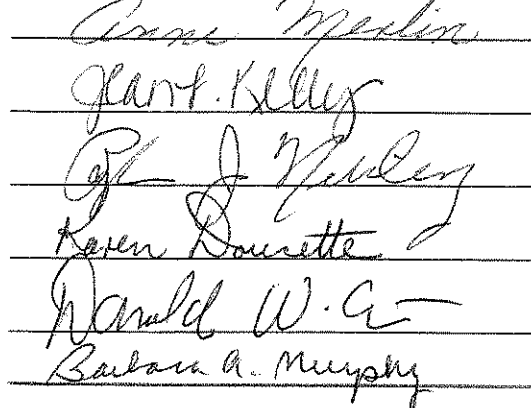 Anne Merlin
Jean F. Kelley
J
Karen Doucette
Donald W.
Barbara A. Murphy